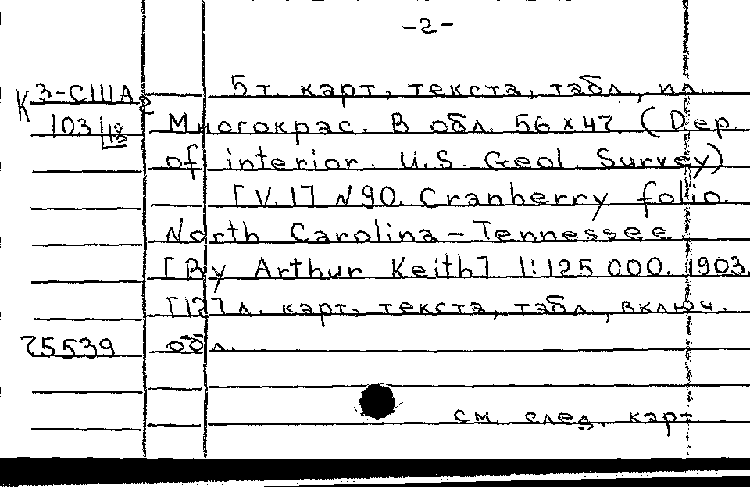 -2-
К 3-США 5 т. карт, текста, табл., ил.
103/18 Многокрас. В обл. 56 x 47. (Dep.
of interior. U.S. Geol. Survey)
[V. 1] N 90. Cranberry folio.
North Carolina - Tennessee
[By Arthur Keith] 1:125 000. 1903.
[12] л. карт, текста, табл., включ.
75539 обл.
см. след. карт